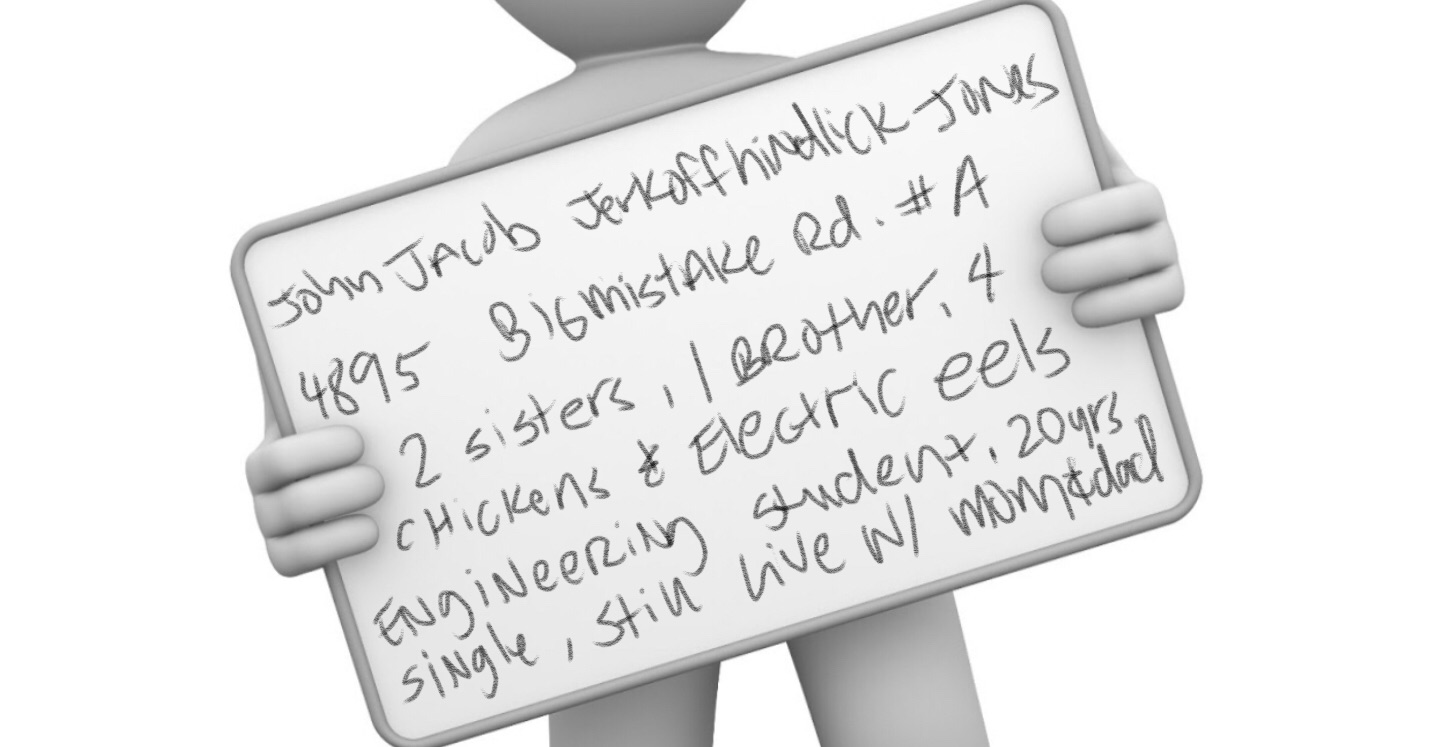 John Jacob Jerkoffhindlick-Jones
4895 Bigmistake Rd. #A
2 sisters, 1 Brother, 4
chickens & Electric eels
Engineering student, 20yrs
single, still live w/ mom&dad